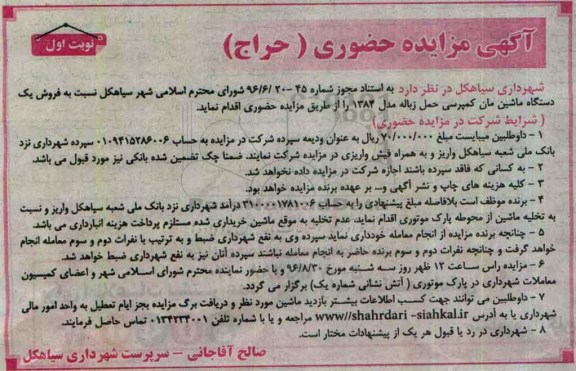 آگهی مزایده حضوری ( حراج)
نوبت اول
شهرداری سیاهکل در نظر دارد به استناد مجوز شماره ۴۵ -۲۰ /۹۶/۶ شورای محترم اسلامی شهر سیاهکل نسبت به فروش یک
دستگاه ماشین مان کمپرسی حمل زباله مدل ۱۳۸۴ را از طریق مزایده حضوری اقدام نماید.
( شرایط شرکت در مزایده حضوری)
۱ - داوطلبین میبایست مبلغ ۷۰/۰۰۰/۰۰۰ ریال به عنوان ودیعه سپرده شرکت در مزایده به حساب ۰۱۰۹۴۱۵۲۸۶۰۰۶ سپرده شهرداری نزد
بانک ملی شعبه سیاهکل واریز و به همراه فیش واریزی در مزایده شرکت نمایند. ضمنا چک تضمین شده بانکی نیز مورد قبول می باشد.
۲ - به کسانی که فاقد سپرده باشند اجازه شرکت در مزایده داده نخواهد شد.
۳ - کلیه هزینه های چاپ و نشر آگهی و... بر عهده برنده مزایده خواهد بود.
۴ - برنده موظف است بلافاصله مبلغ پیشنهادی را به حساب ۳۱۰۰۰۰۱۷۸۱۰۰۶ درآمد شهرداری نزد بانک ملی شعبه سیاهکل واریز و نسبت
به تخلیه ماشین از محوطه پارک موتوری اقدام نماید. عدم تخلیه به موقع ماشین خریداری شده مستلزم پرداخت هزینه انبارداری می باشد.
۵ - چنانچه برنده مزایده از انجام معامله خودداری نماید سپرده وی به نفع شهرداری ضبط و به ترتیب با نفرات دوم و سوم معامله انجام
خواهد گرفت و چنانچه نفرات دوم و سوم برنده حاضر به انجام معامله نباشند سپرده آنان نیز به نفع شهرداری ضبط خواهد شد.
۶ - مزایده راس ساعت ۱۲ ظهر روز سه شنبه مورخ ۹۶/۸/۳۰ و با حضور نماینده محترم شورای اسلامی شهر و اعضای کمیسیون
معاملات شهرداری در پارک موتوری ( آتش نشانی شماره یک) برگزار می گردد.
۷ - داوطلبین می توانند جهت کسب اطلاعات بیشتر بازدید ماشین مورد نظر و دریافت برگ مزایده بجز ایام تعطیل به واحد امور مالی
شهرداری یا به آدرس www//shahrdari -siahkal.ir مراجعه و یا با شماره تلفن ۰۱۳۴۲۳۳۰۰۱ تماس حاصل فرمایند.
۸ - شهرداری در رد یا قبول هر یک از پیشنهادات مختار است.
صالح آقاجانی - سرپرست شهرداری سیاهکل